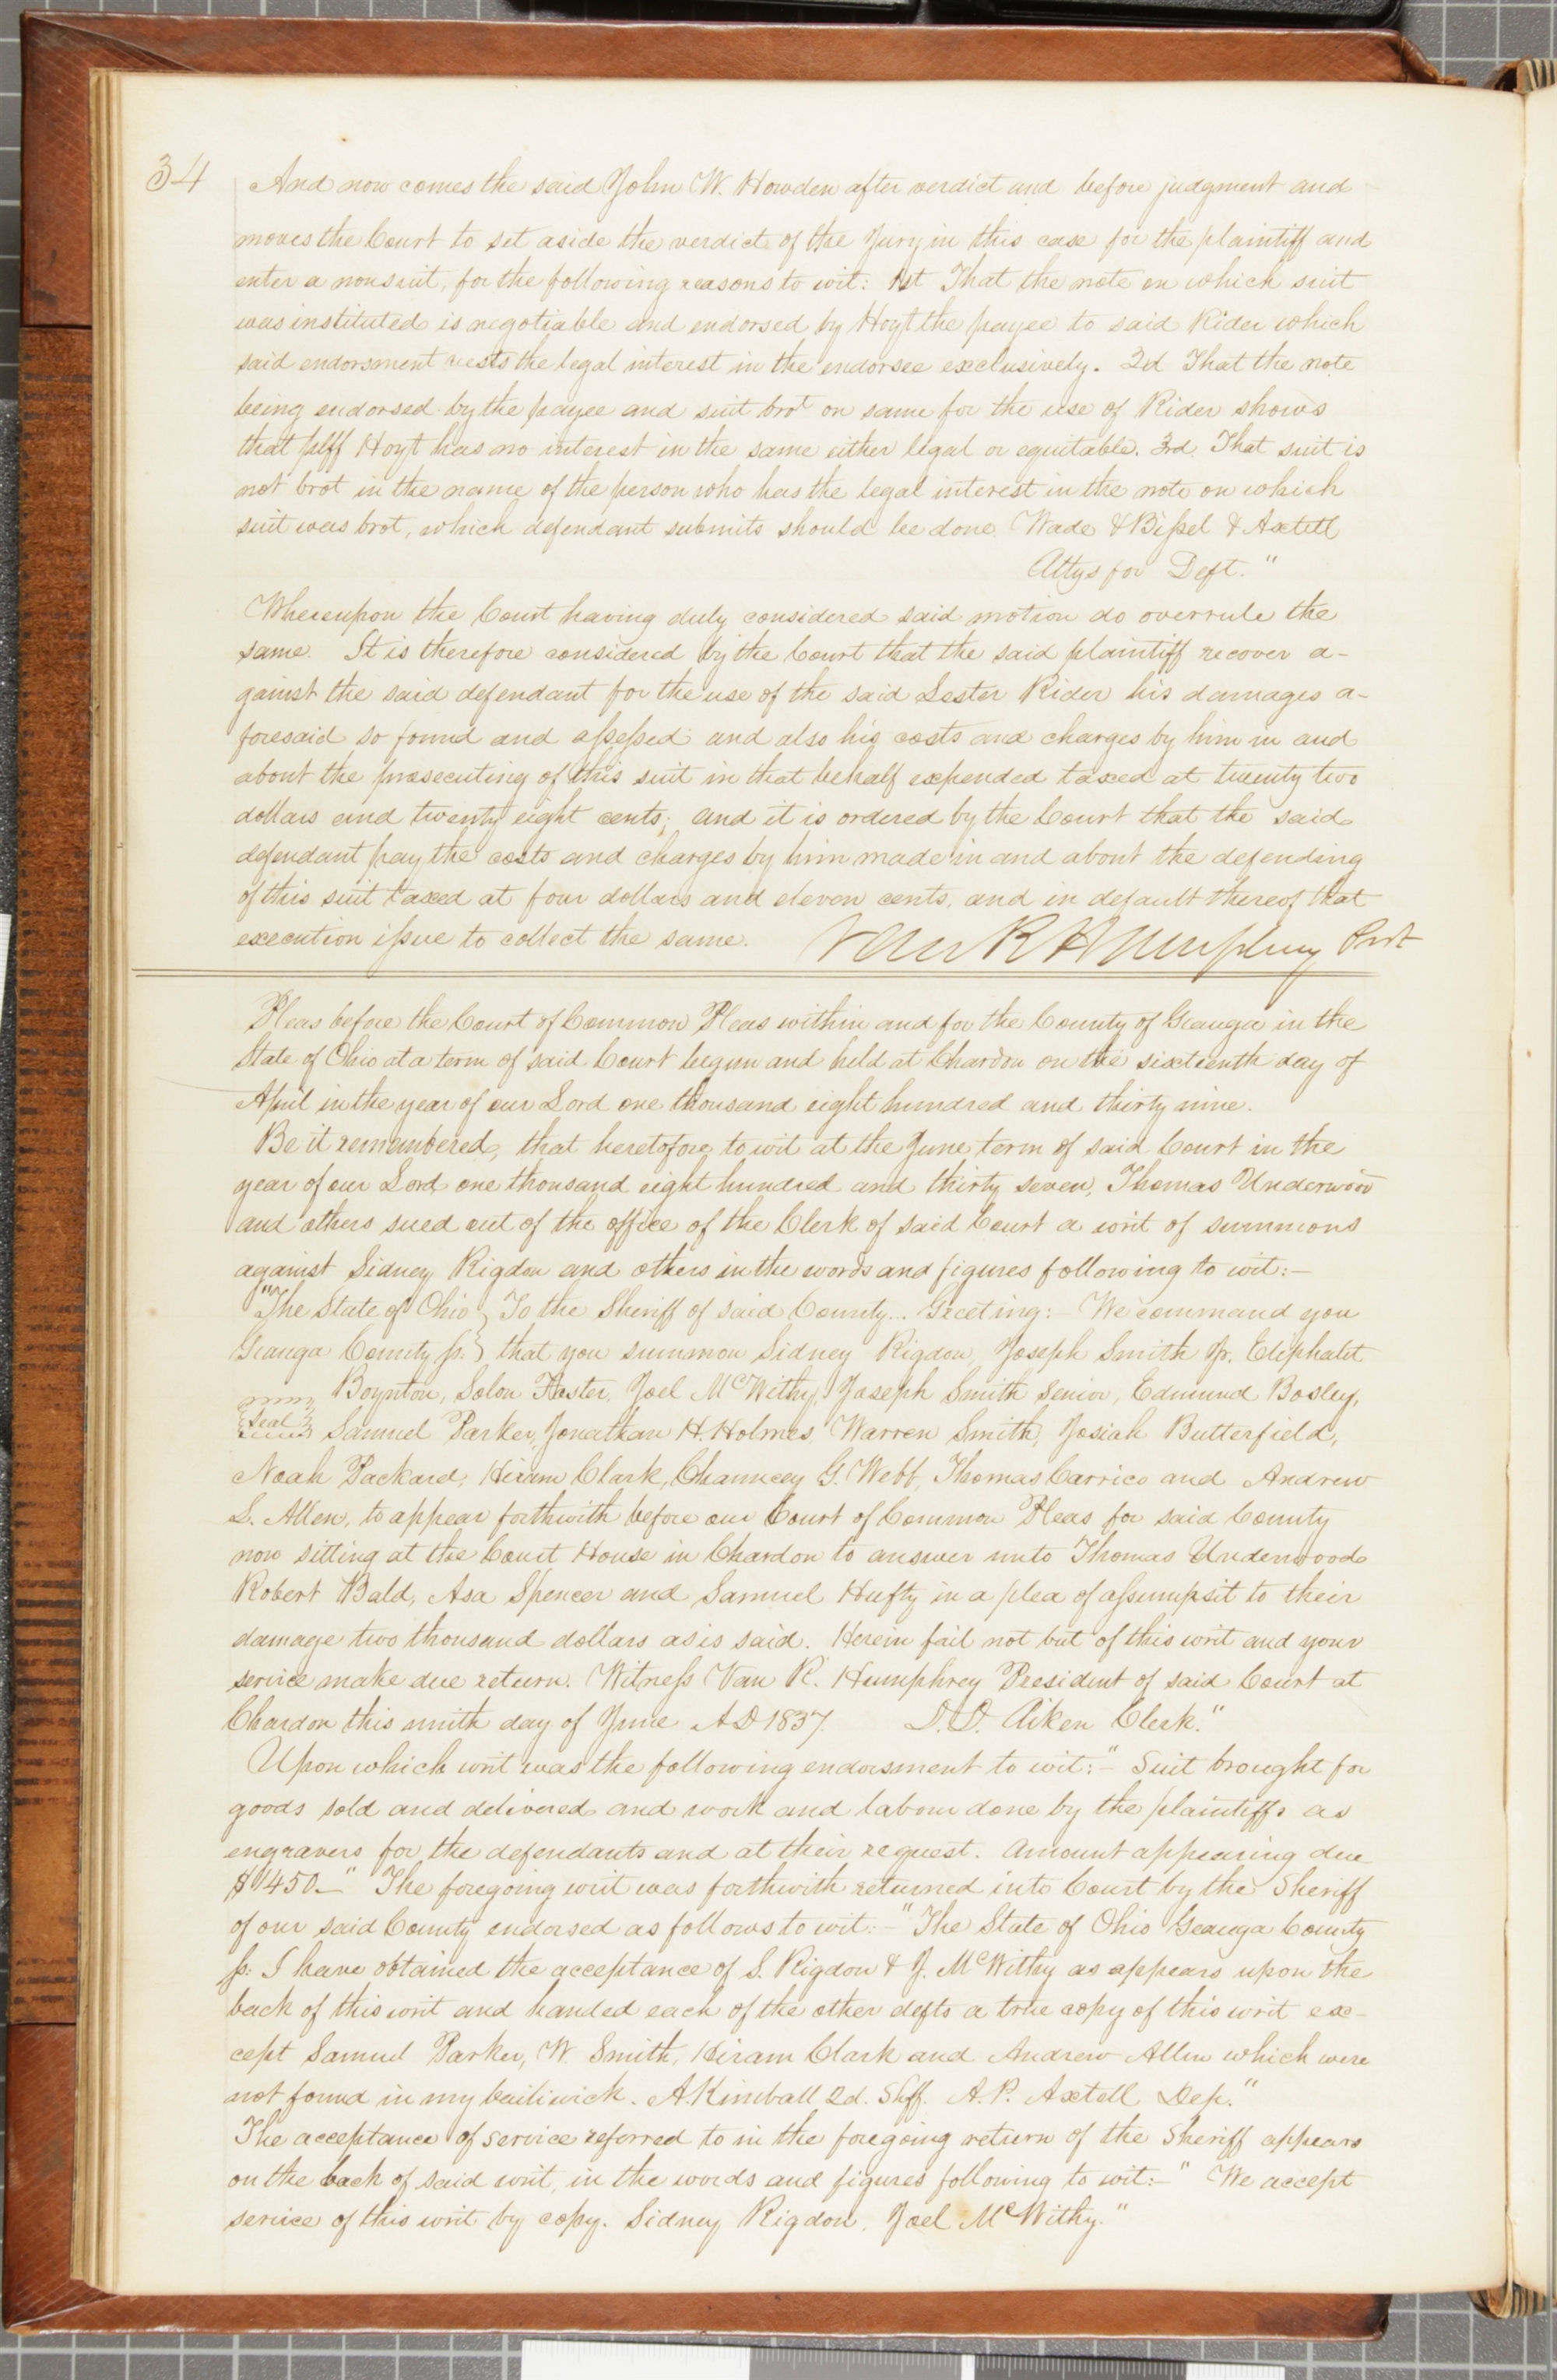 34
And now comes the said John W. Howden after verdict and before judgment and
moves the Court to set aside the verdict of the Jury in this case for the plaintiff and
enter a nonsuit, for the following reasons to wit: 1st That the note on which suit
was instituted is negotiable and endorsed by Hoyt the payee to said Rider which
said endorsment vests the legal interest in the endorsee exclusively. 2d That the note
being endorsed by the payee and suit brot on same for the use of Rider shows
that plff Hoyt has no interest in the same either legal or equitable. 3rd. That suit is
not brot in the name of the person who has the legal interest in the note on which
suit was brot, which defendant submits should be done. Wade & Bissel & Axtell
Attys for Deft."
Whereupon the Court having duly considered said motion do overrule the
same. It is therefore considered by the Court that the said plaintiff recover a-
gainst the said defendant for the use of the said Lester Rider his damages a-
foresaid so found and assessed and also his costs and charges by him in and
about the prosecuting of this suit in that behalf expended taxed at twenty two
dollars and twenty eight cents; and it is ordered by the Court that the said
defendant pay the costs and charges by him made in and about the defending
of this suit taxed at four dollars and eleven cents, and in default thereof that
execution issue to collect the same. Van R Humphrey Prest
Pleas before the Court of Common Pleas within and for the County of Geauga in the
State of Ohio at a term of said Court begun and held at Chardon on the sixteenth day of
April in the year of our Lord one thousand eight hundred and thirty nine.
Be it remembered, that heretofore to wit at the June term of said Court in the
year of our Lord one thousand eight hundred and thirty seven, Thomas Underwood
and others sued out of the office of the Clerk of said Court a writ of summons
against Sidney Rigdon and others in the words and figures following to wit:-
"The State of Ohio } To the Sheriff of said County... Greeting:- We command you
Geauga County ss. } that you summon Sidney Rigdon, Joseph Smith Jr. Eliphalet
Boynton, Solon Foster, Joel McWithy, Joseph Smith Senior, Edmund Bosley,
Seal Samuel Parker, Jonathan H. Holmes Warren Smith, Josiah Butterfield,
Noah Packard, Hiram Clark, Chauncey G. Webb, Thomas Carrico and Andrew
L. Allen, to appear forthwith before our Court of Common Pleas for said County
now sitting at the Court House in Chardon to answer unto Thomas Underwood
Robert Bald, Asa Spencer and Samuel Hufty in a plea of assumpsit to their
damage two thousand dollars as is said. Herein fail not but of this writ and your
service make due return. Witness Van R. Humphrey President of said Court at
Chardon this ninth day of June AD 1837 D. D. Aiken Clerk."
Upon which writ was the following endorsment to wit:- "Suit brought for
goods sold and delivered and work and labour done by the plaintiffs as
engravers for the defendants and at their request. Amount appearing due
$1450-" The foregoing writ was forthwith returned into Court by the Sheriff
of our said County endorsed as follows to wit:- "The State of Ohio Geauga County
ss: I have obtained the acceptance of S. Rigdon & J. McWithy as appears upon the
back of this writ and handed each of the other defts a true copy of this writ ex-
cept Samuel Parker, W. Smith, Hiram Clark and Andrew Allen which were
not found in my bailiwick. A. Kimball 2d. Shff. A. P. Axtell Dep."
The acceptance of service referred to in the foregoing return of the Sheriff appears
on the back of said writ, in the words and figures following to wit:- "We accept
service of this writ by copy. Sidney Rigdon, Joel McWithy."